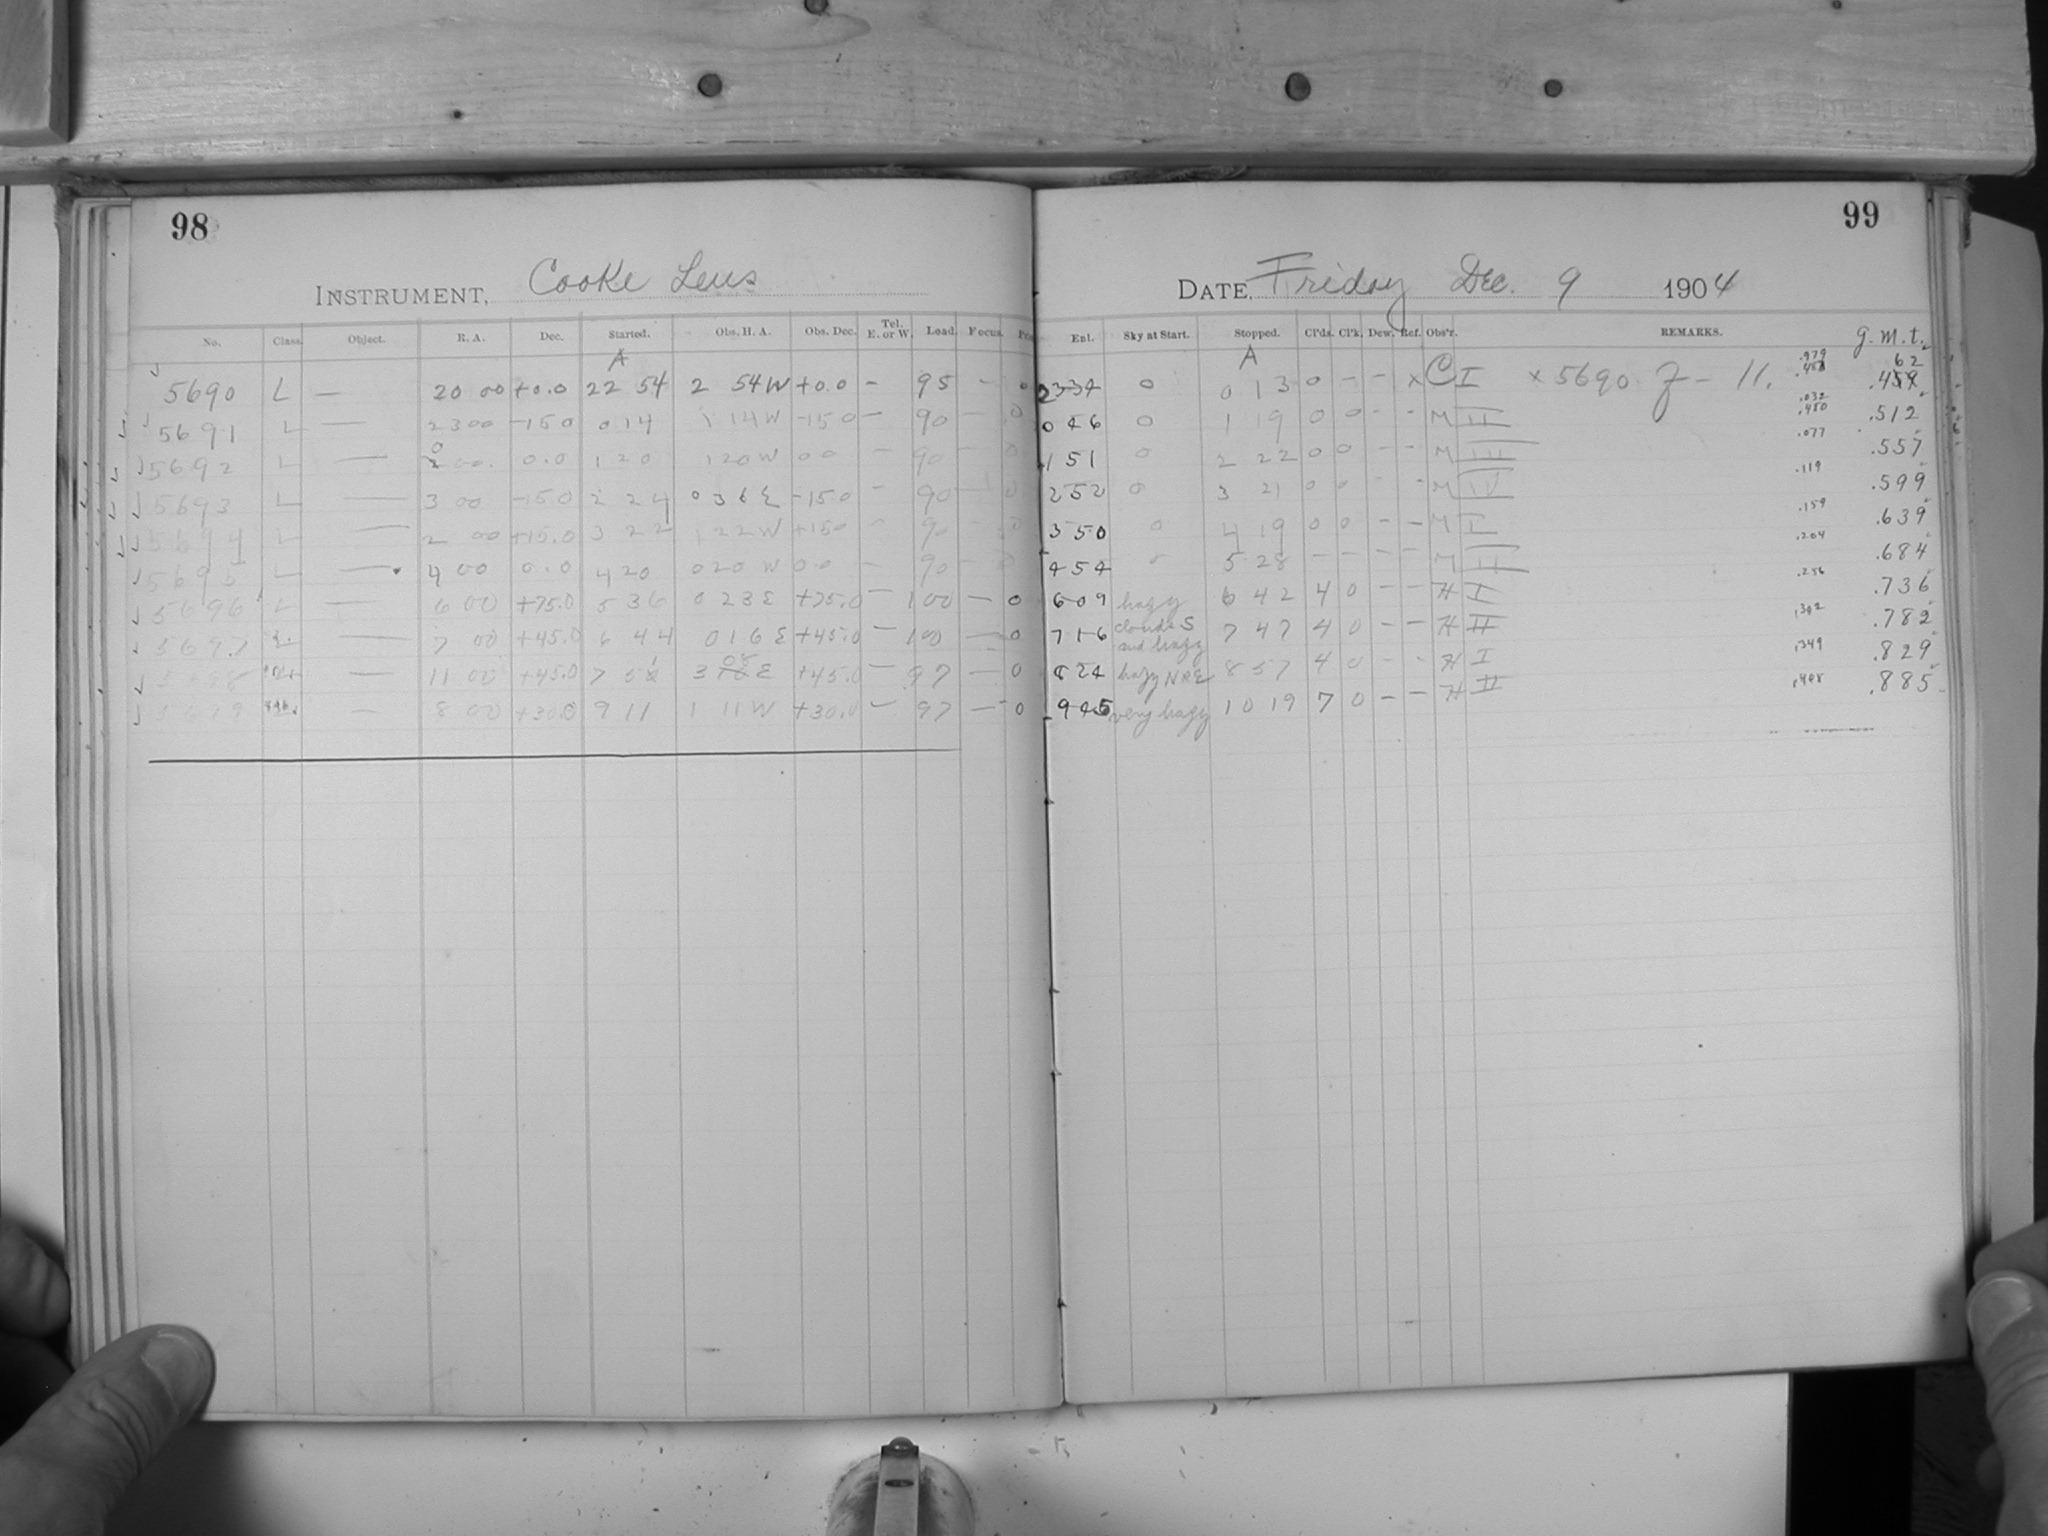 98
INSTRUMENT, Cooke Lens
No. Class. Object. R. A. Dec. Started. Obs. H. A. Obs. Dec. Tel. E. or W. Load. Focus.
A
5690 L — 20 00 +0.0 22 54 2 54 W +0.0 - 95 - 0
5691 L — 23 00 -15 0 0 14 1 14 W -15 0 — 90 — 0
5692 L — 0 00 0.0 1 20 1 20 W 0 0 — 90 — 0
5693 L — 3 00 -15.0 2 24 0 36 E -15.0 - 90 — 0
5694 L — 2 00 +15.0 3 22 1 22 W +15.0 - 90 — 0
5695 L — 4 00 0.0 4 20 0 20 W 0.0 - 90 — 0
5696 L — 6 00 +75.0 5 36 0 23 E +75.0 — 100 — 0
5697 L — 7 00 +45.0 6 44 0 16 E +45.0 — 100 — 0
5698 — 11 00 +45.0 7 51 3 08 E +45.0 — 97 — 0
5699 — 8 00 +30.0 9 11 1 11 W +30.0 — 97 — 0
99
DATE, Friday Dec. 9 1904
Ent. Sky at Start. Stopped. Cl'ds. Cl'k. Dew. Ref. Obs'r. REMARKS. G. M. T.
A
2334 0 0 13 0 - - x C I x 5690 J - 11. .979 62
0 46 0 1 19 0 0 - - M II .032 .512
1 51 0 2 22 0 0 - - M III .077 .557
2 52 0 3 21 0 0 - - M IV .119 .599
3 50 0 4 19 0 0 - - M I .159 .639
4 54 0 5 28 - - - - M II .204 .684
6 09 hazy 6 42 4 0 - - H I .256 .736
7 16 clouds S and hazy 7 47 4 0 - - H II .302 .782
8 24 hazy N & E 8 57 4 0 - - H I .349 .829
9 45 very hazy 10 19 7 0 - - H II .885